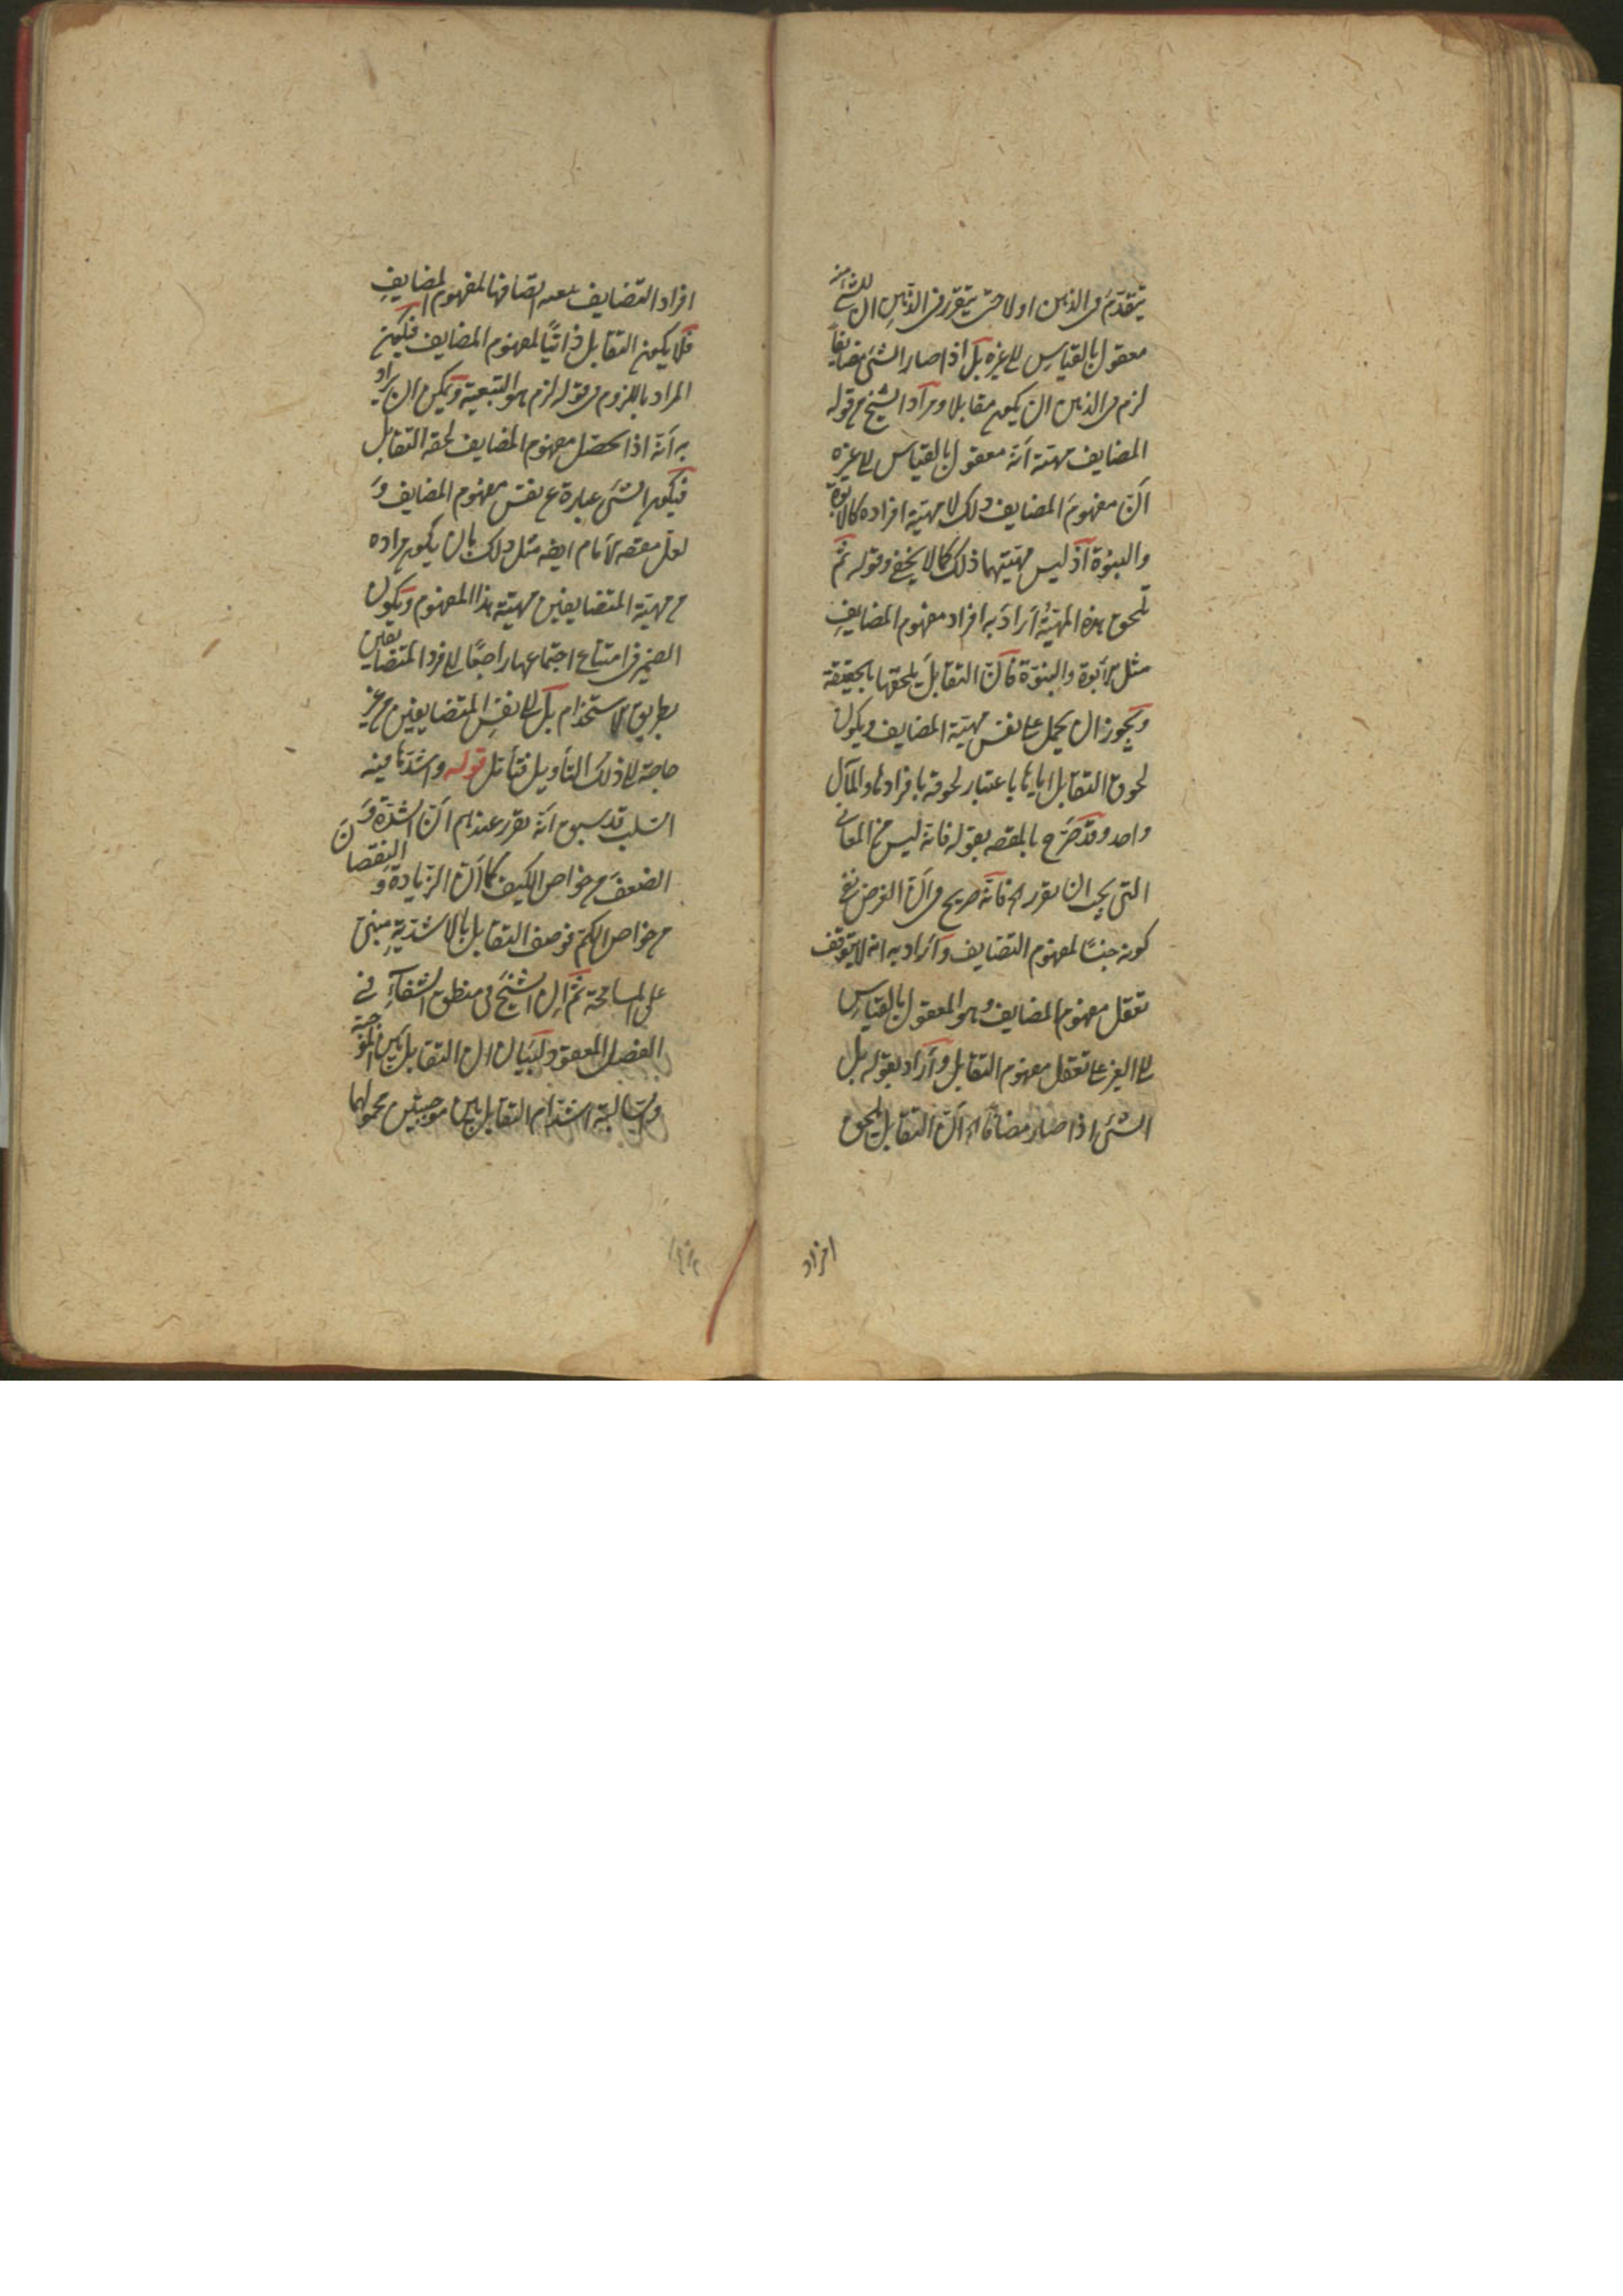 يتقدم في الذهن اولا حتى يتقرر في الذهن ان للشئ امر
معقول بالقياس الى غيره بل اذا صار الشئ مضايفاً
لزم في الذهن ان يكون مقابلا ومراد الشيخ من قوله
المضايف مهيته انه معقول بالقياس الى غيره
ان مفهوم المضايف ذلك لا مهية افراده كالابوة
والبنوة اذ ليس مهيتهما ذلك كما لا يخفى وقوله ثم
تلحق هذه المهية اراد به افراد مفهوم المضايف
مثل الابوة والبنوة فان التقابل يلحقها بالحقيقة
ويجوز ان يحمل على نفس مهية المضايف ويكون
لحوق التقابل اياها باعتبار لحوقه بافرادها والمآل
واحد وقد صرح بالمقصد بقوله فانه ليس من المعاني
التي يجب ان تقرر اه فانه صريح في ان الغرض نفي
كونه جنسا لمفهوم التضايف واراد به انه لا يتوقف
تعقل مفهوم المضايف وهو المعقول بالقياس
الى الغير على تعقل مفهوم التقابل واراد بقوله بل
الشئ اذا صار مضافا اه ان التقابل يلحق
افراد
افراد التضايف بعد اتصافها لمفهوم المضايف
فلا يكون التقابل ذاتيًا لمفهوم المضايف فيكون
المراد باللزوم في قوله لزم هو التبعية ويمكن ان يراد
به انه اذا تحصل مفهوم المضايف لحقه التقابل
فيكون الشئ عبارة عن نفس مفهوم المضايف و
لعل مقصد الامام ايضا مثل ذلك بان يكون مراده
من مهية المتضايفين مهية هذا المفهوم ويكون
الضمير في امتناع اجتماعها راجعًا الى افراد المتضايفين
بطريق الاستخدام بل الى نفس المتضايفين من غير
حاجة الى ذلك التأويل فتأمل قوله واشدها فيه
السلب قد سبق انه تقرر عندهم ان الشدة و
الضعف من خواص الكيف كما ان الزيادة و النقصان
من خواص الكم فوصف التقابل بالاشدية مبني
على المسامحة ثم ان الشيخ في منطق الشفاء في
الفصل المعقود لبيان ان التقابل بين الموجبة
والسالبة اشد ام التقابل بين موجبتين محمولهما